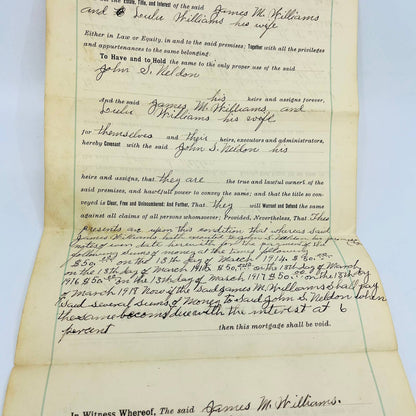 the Estate, Title, and Interest of the said James M. Williams
and Louise Williams his wife
Either in Law or Equity, in and to the said premises; Together with all the privileges
and appurtenances to the same belonging.
To Have and to Hold the same to the only proper use of the said
John S. Neldon
his heirs and assigns forever,
And the said James M. Williams, and
Louise Williams his wife
for themselves and their heirs, executors and administrators,
hereby Covenant with the said John S. Neldon his
heirs and assigns, that they are the true and lawful owners of the
said premises, and have full power to convey the same; and that the title so con-
veyed is Clear, Free and Unincumbered: And Further, That they will Warrant and Defend the
same against all claims of all persons whomsoever; Provided, Nevertheless, That These
presents are upon this condition that whereas said
James Williams
notes of even date herewith for the payment of the
following sums of money at the times following
$50.00 on the 13th day of March 1914. $50.00
on the 13th day of March 1915 $50.00 on the 13th day of March
1916 $50.00 on the 13th day of March 1917 $50.00 on the 13th day
of March 1918 Now if the said James M. Williams shall pay
said several sums of money to said John S. Neldon when
the same become due with the interest at 6
percent then this mortgage shall be void.
In Witness Whereof, The said James M. Williams.